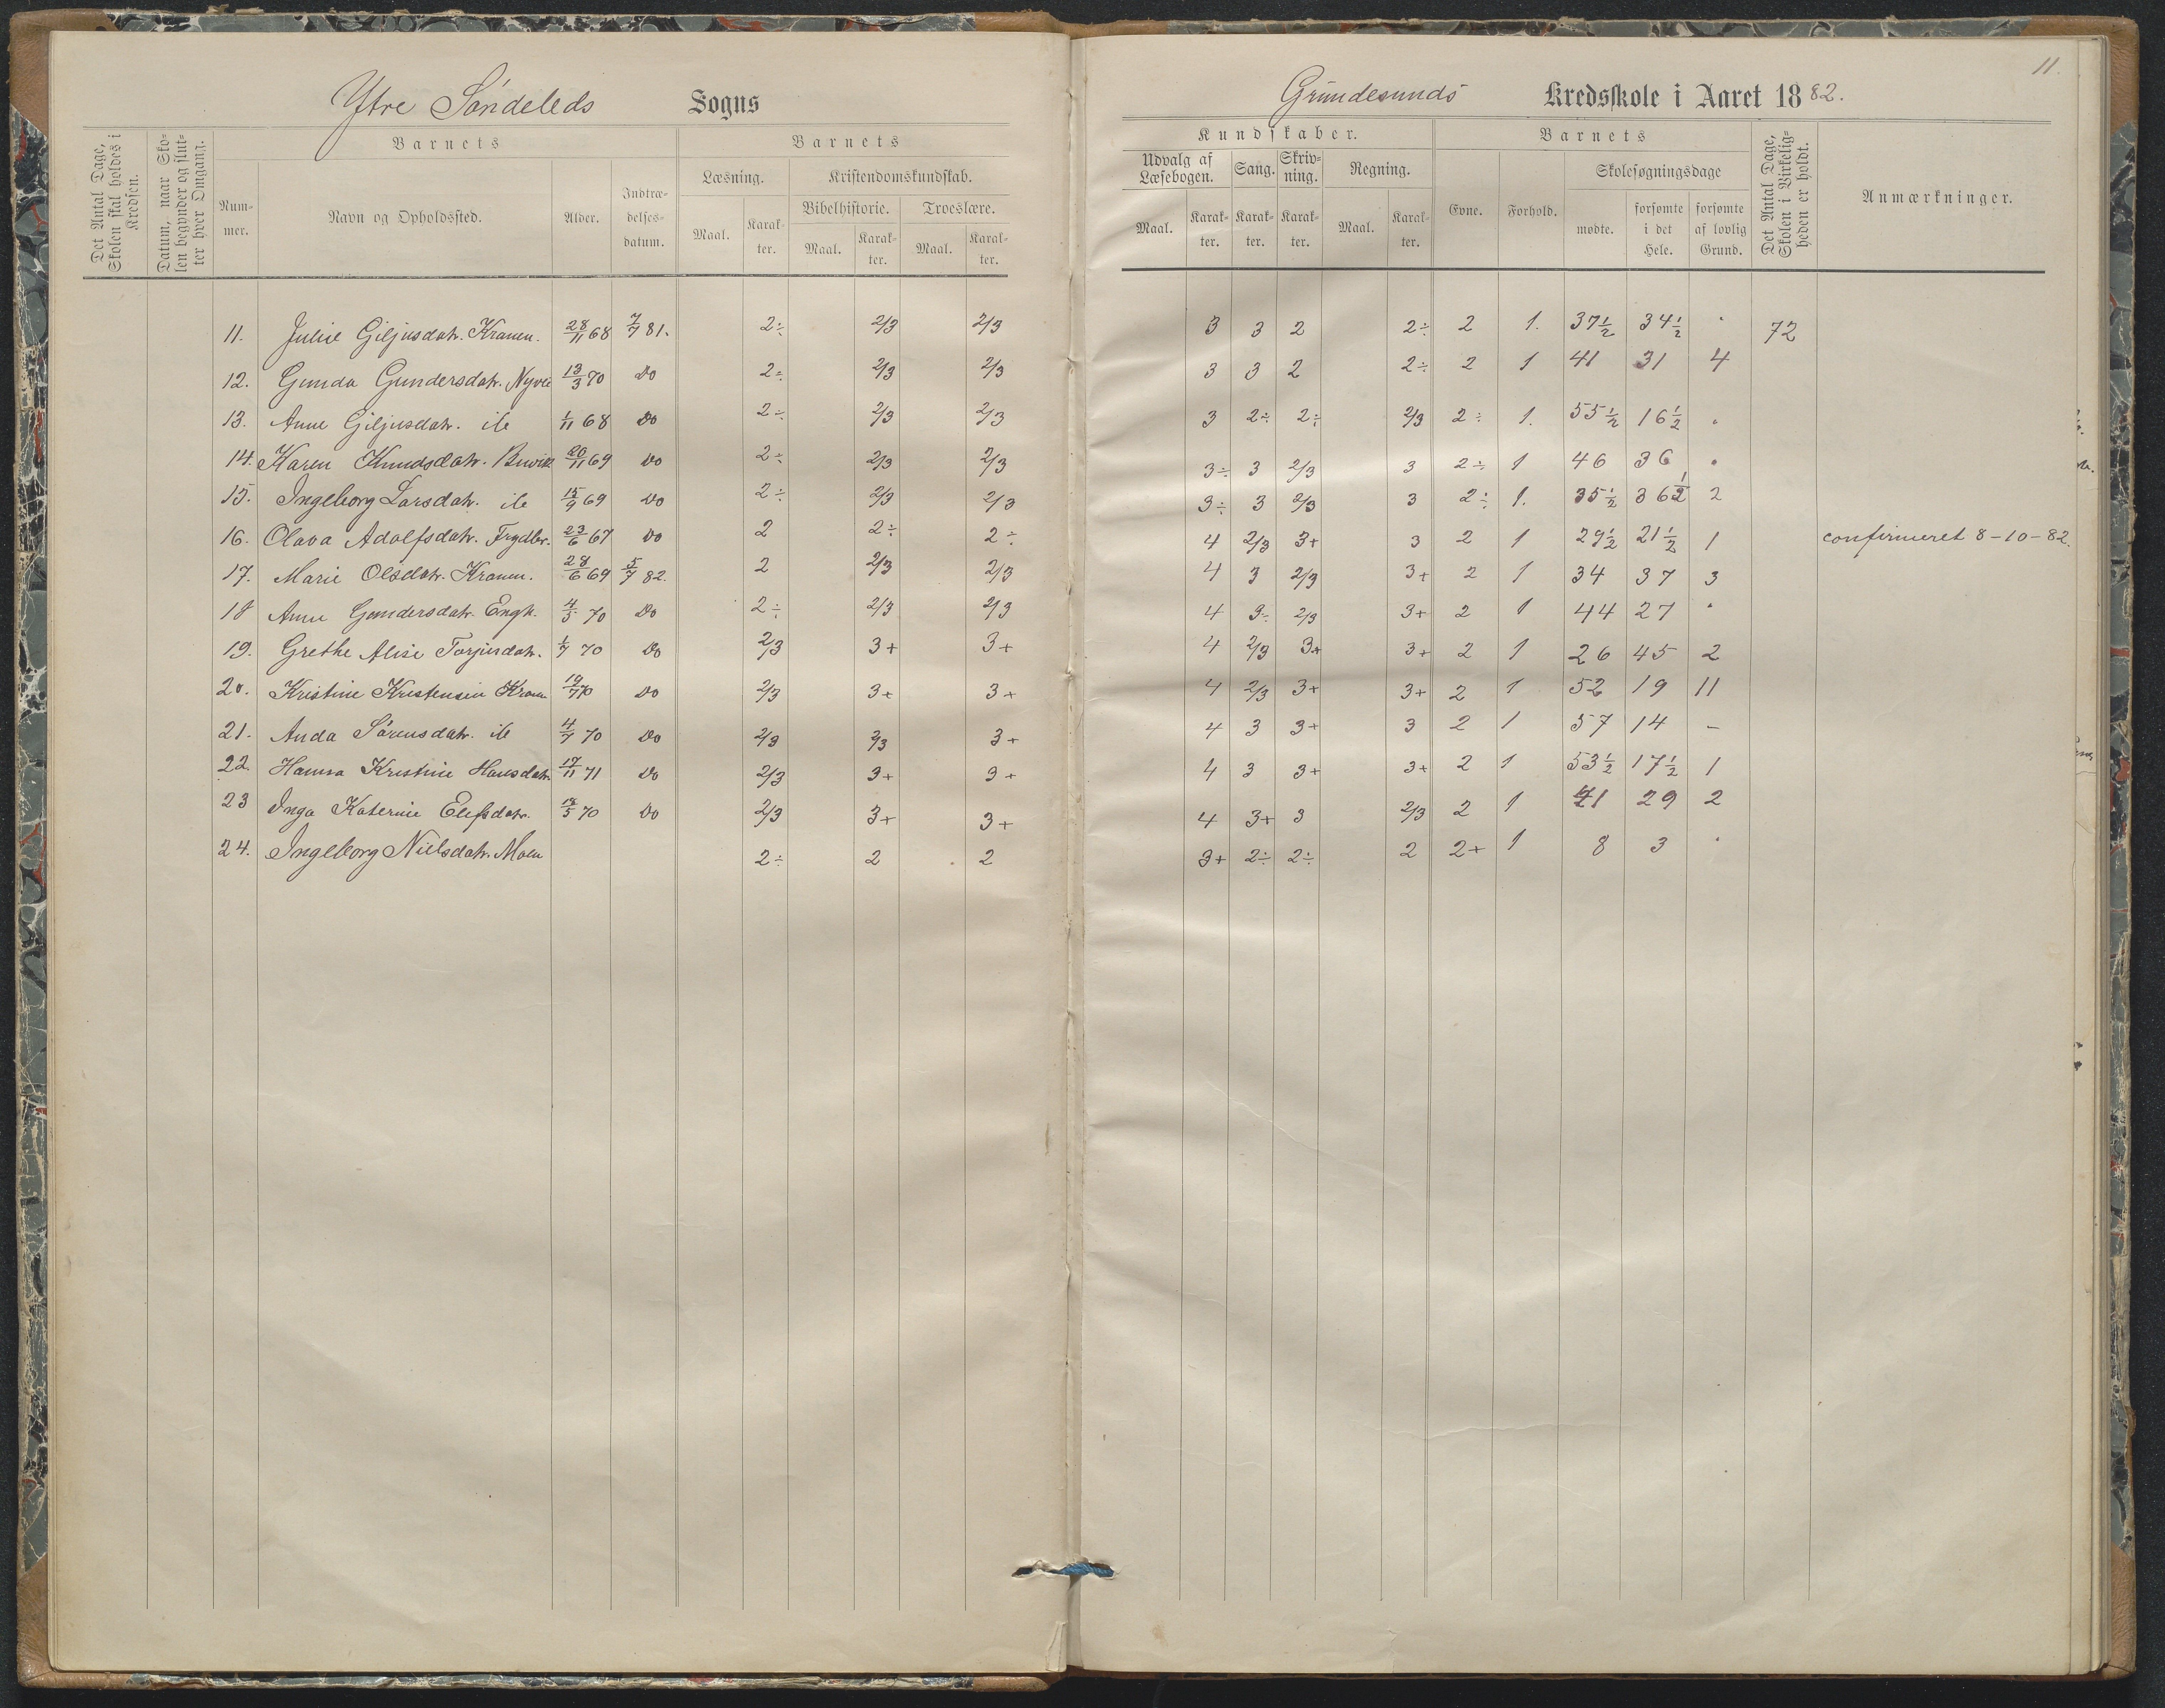 11.
Ytre Söndeleds Sogns
Grundesunds Kredsskole i Aaret 1882.
Det Antal Dage, Skolen skal holdes i Kredsen.
Datum, naar Skolen begynder og slutter hver Omgang.
Barnets
Nummer.
Navn og Opholdssted.
Alder.
Indtrædelsesdatum.
Barnets
Læsning.
Maal.
Karakter.
Kristendomskundskab.
Bibelhistorie.
Maal.
Karakter.
Troeslære.
Maal.
Karakter.
Kundskaber.
Udvalg af Læsebogen.
Maal.
Karakter.
Sang.
Karakter.
Skrivning.
Karakter.
Regning.
Maal.
Karakter.
Barnets
Evne.
Forhold.
Skolesøgningsdage
mødte.
forsømte i det Hele.
forsømte af lovlig Grund.
Det Antal Dage, Skolen i Virkeligheden er holdt.
Anmærkninger.
11. Julie Giljusdatr. Kranen. 28/11 68 7/7 81. 2÷ 2/3 2/3 3 3 2 2÷ 2 1. 37½ 34½ " 72
12. Gunda Gundersdatr. 13/3 70 Do 2÷ 2/3 2/3 3 3 2 2÷ 2 1 41 31 4
13. Anne Giljusdatr. ib 1/11 68 Do 2÷ 2/3 2/3 3 2÷ 2÷ 2/3 2÷ 1. 55½ 16½ "
14. Karen Knudsdatr. 20/11 69 Do 2÷ 2/3 2/3 3÷ 3 2/3 3 2÷ 1 46 36 "
15. Ingeborg Larsdatr. ib 15/9 69 Do 2÷ 2/3 2/3 3÷ 3 2/3 3 2÷ 1. 35½ 36½ 2
16. Olava Adolfsdatr. 23/6 67 Do 2 2÷ 2÷ 4 2/3 3+ 3 2 1 29½ 21½ 1 confirmeret 8-10-82.
17. Marie Olsdatr. Kranen. 28/6 69 5/7 82. 2 2/3 2/3 4 3 2/3 3+ 2 1 34 37 3
18 Anne Gundersdatr. Engh. 4/5 70 Do 2÷ 2/3 2/3 4 3÷ 2/3 3+ 2 1 44 27 "
19. Grethe Alise Torjusdatr. 1/7 70 Do 2/3 3+ 3+ 4 2/3 3+ 3+ 2 1 26 45 2
20. Kristine Kristensen Kranen 19/7 70 Do 2/3 3+ 3+ 4 2/3 3+ 3+ 2 1 52 19 11
21. Anda Sörensdatr. ib 4/7 70 Do 2/3 2/3 3+ 4 3 3+ 3 2 1 57 14 -
22. Hanna Kristine Hansdatr 17/11 71 Do 2/3 3+ 3+ 4 3 3+ 3+ 2 1 53½ 17½ 1
23 Inga Katerine 5 70 Do 2/3 3+ 3+ 4 3+ 3 2/3 2 1 41 29 2
24. Ingeborg Nielsdatr. Moen 2÷ 2 2 3+ 2÷ 2÷ 2 2+ 1 8 3 "